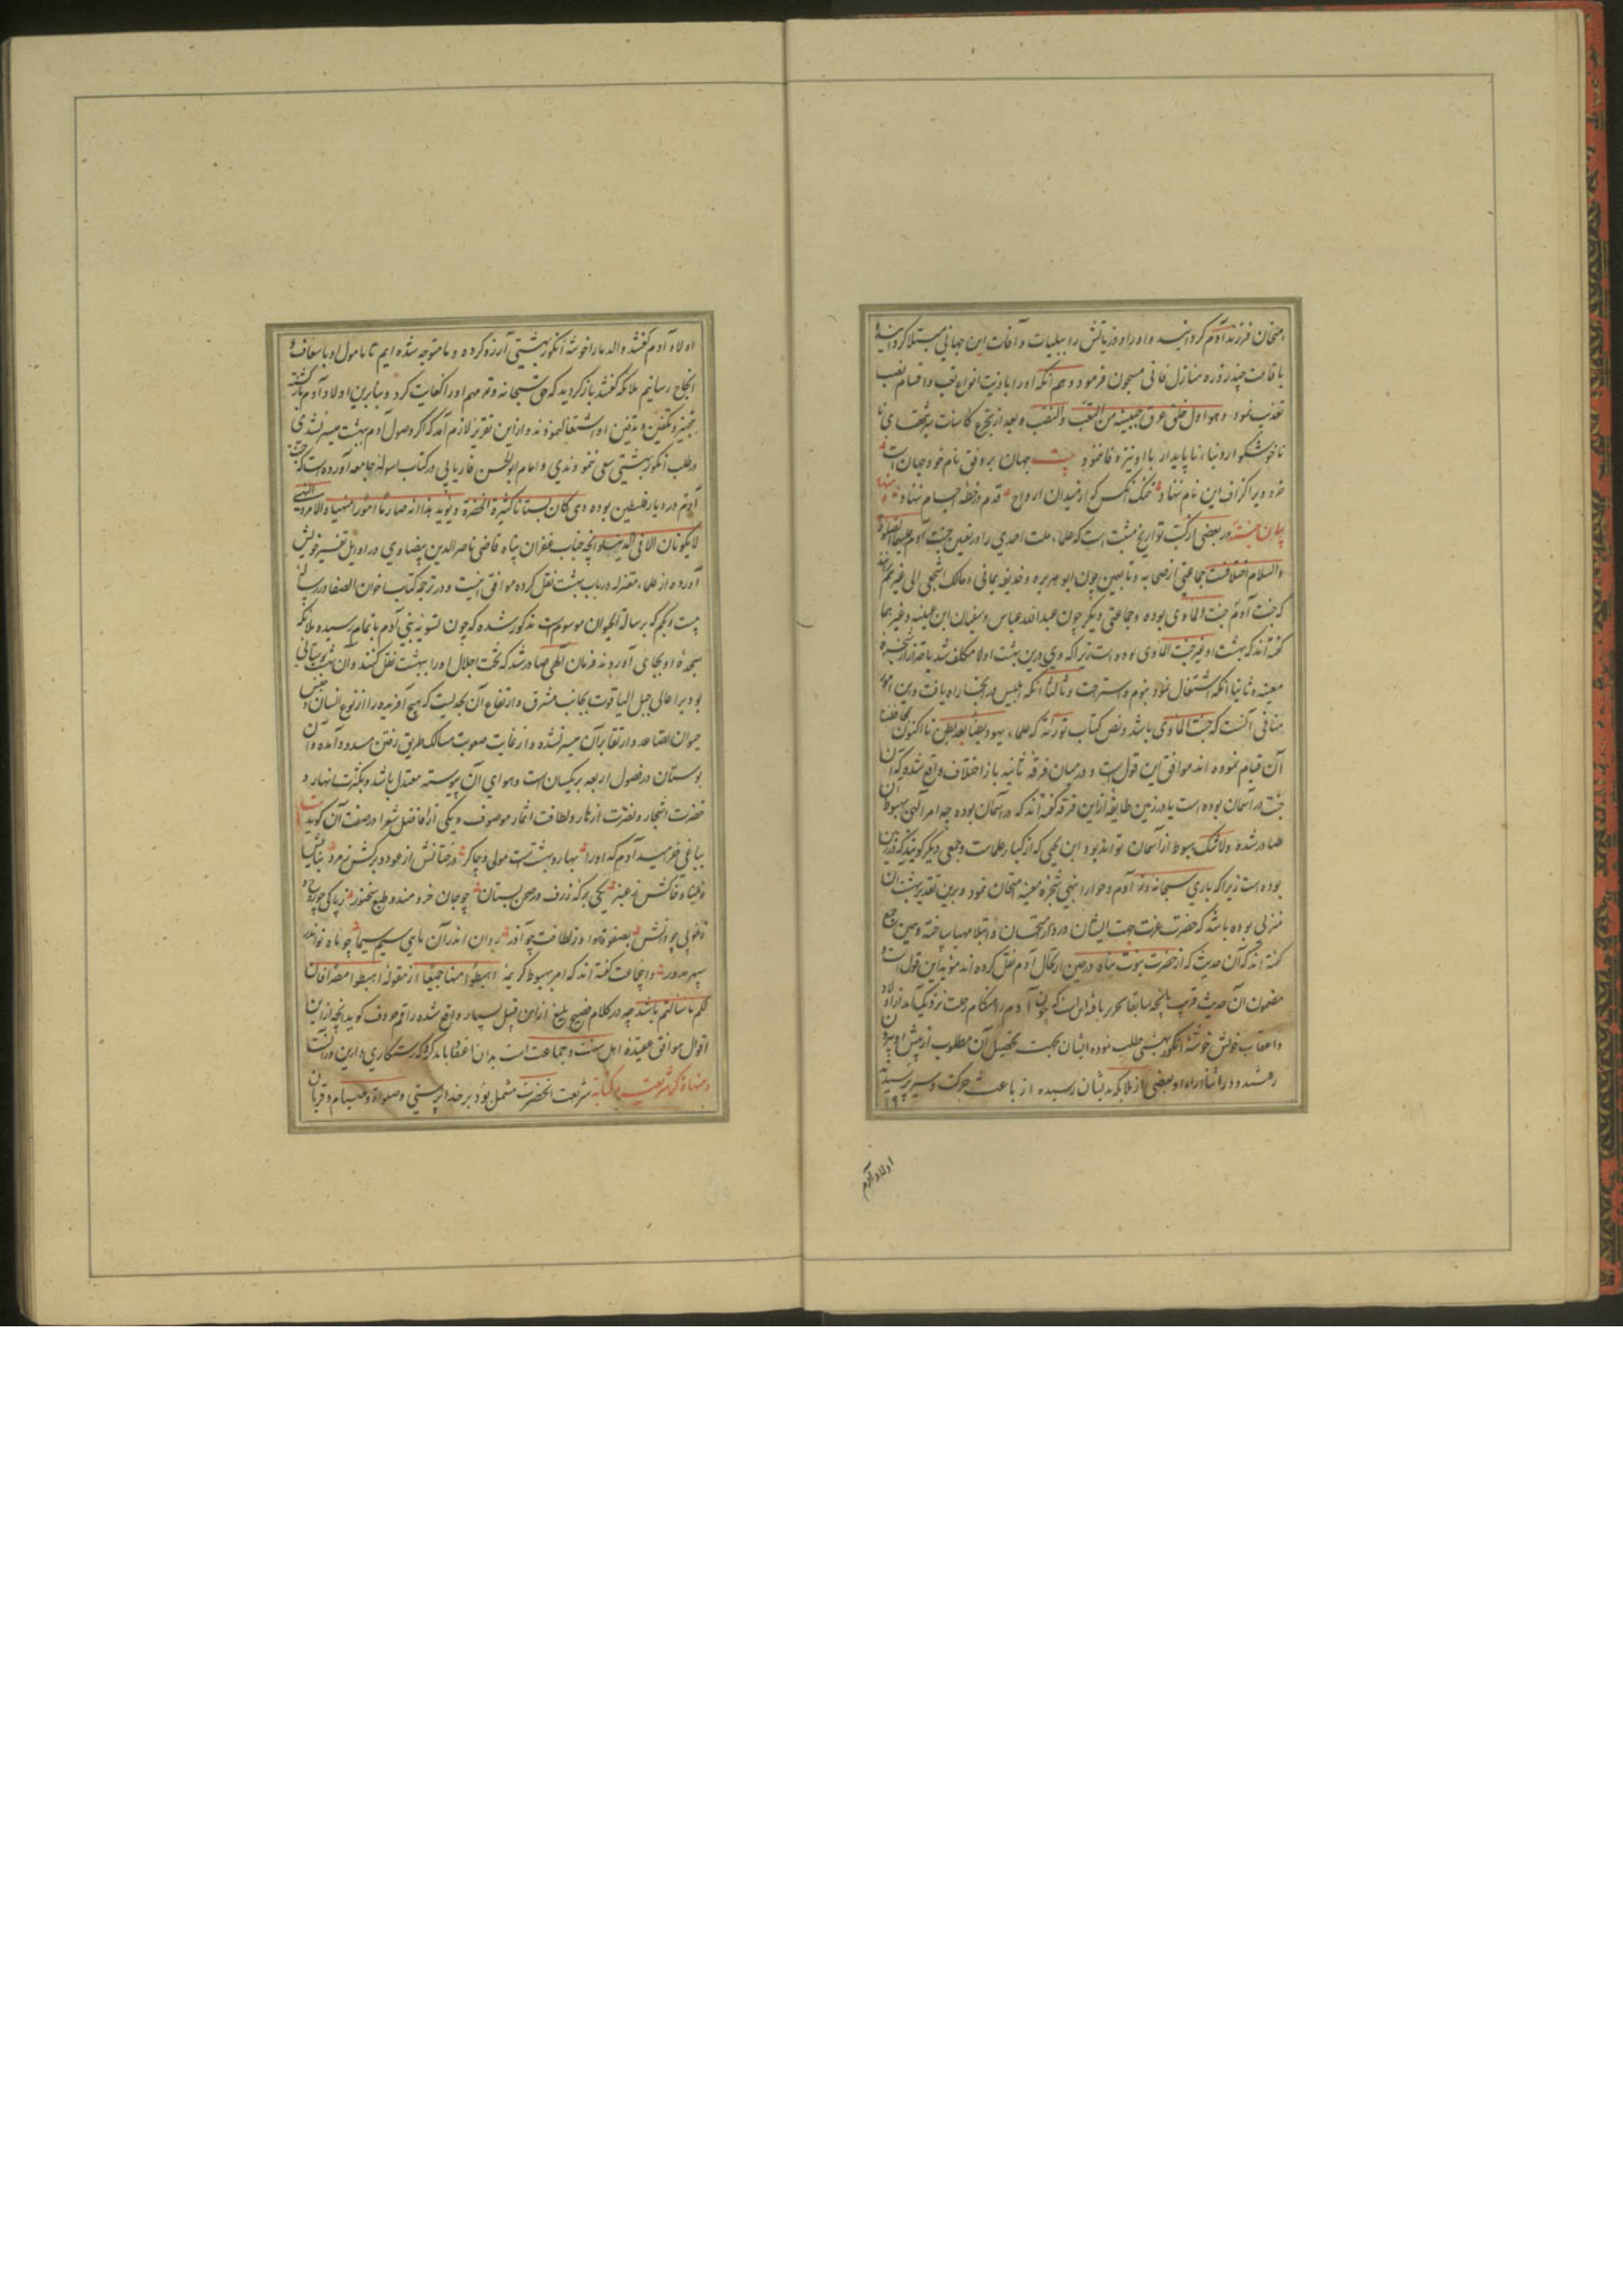 امتحان فرزند آدم گردانید و او را و ذریاتش را ببلیات و آفات این جهانی مبتلا گردانید و
باقامت چند روزه منازل فانی مسجون فرمود و هم آنکه او را باذیت انواع تعب و اقسام نصب
تعذیب نمود و هو اول خلق عرق جبینه من التعب والنصب و بعد از تجرع کاسات
ناخوشگوار دنیاء ناپایدار با او نیز وفا ننمود جهان بر وفق نام خود جهان است
خرد ویرا گزاف این نام ننهاد خنک آنکس که از میدان ارواح قدم در خطه اجسام ننهاد
بیان جنت در بعضی از کتب تواریخ مثبت است که علماء ملت احمدی را در تعیین جنت آدم علیهما الصلوة
والسلام اختلافست جماعتی از صحابه و تابعین چون ابو هریره و حذیفه یمانی و مالک اشجعی الی غیرهم
که جنت آدم جنت الماوی بوده و جماعتی دیگر چون عبدالله عباس و سفیان ابن عیینه و غیرهما
گفته‌اند که بهشت او غیر جنت الماوی بوده است زیرا که وی درین بهشت اولا مکلف شد باحتراز از شجره
معینه و ثانیا آنکه اشتغال نمود بنوم و استراحت و ثالثا آنکه ابلیس در آنجا راه یافت و این امور
منافی آنست که جنت الماوی باشد و نص کتاب تورته که علماء یهود بطنا بعد بطن تا اکنون
آن قیام نموده اند موافق این قول است و در میان فرقه ثانیه باز اختلاف واقع شده که آن
جنت در آسمان بوده است یا در زمین طایفه ازین فرقه گفته‌اند که در آسمان بوده چه امر الهی بهبوط
صادر شده ولاشک هبوط از آسمان تواند بود ابن یحیی که از کبار علماست و جمعی دیگر گویند که در زمین
بوده است زیرا که باری سبحانه و تعالی آدم و حوا را بنهی شجره معینه ممتحن نمود و برین تقدیر بهشت آن
منزلی بوده باشد که حضرت عزت جهت ایشان در دار امتحان و ابتلا مهیا ساخته و همین جمع
گفته اند که آن حدیث که از حضرت نبوت پناه در حین ارتحال آدم نقل کرده اند مؤید این قول است و
مضمون آن حدیث قریب بآنچه سابقا تحریر یافته این است که چون آدم را هنگام رحلت نزدیک آمد از اولاد
و اعقاب خویش خوشه انگور بهشتی طلب نموده ایشان بجهت تحصیل آن مطلوب از پیش او بیرون
رفتند و در اثناء راه او بعضی از ملائکه بدیشان رسیده از باعث حرکت و سیر پرسیدند
۱۶
اولاد آدم
اولاد آدم گفتند والد ما را خوشه انگور بهشتی آرزو کرده و ما متوجه شده ایم تا مامول او باسعاف و
انجاح رسانیم ملائکه گفتند باز گردید که حق سبحانه و تعالی مهم او را کفایت کرد و بنابرین اولاد آدم بازگشته
بتجهیز و تکفین و تدفین او اشتغال نمودند و ازین تقریر لازم آمد که اگر وصول آدم ببهشت میسر نشدی
در طلب انگور بهشتی سعی ننمودندی و امام ابوالحسن فاریابی در کتاب اسوله جامعه آورده است که جنت
آدم در دیار فلسطین بوده وهی کان بستانا کثیرة الخضرة و یؤید هذا انه صار مامورا منهیا والامر والنهی
لایکونان الا فی الدنیا و آنچه جناب غفران پناه قاضی ناصرالدین بیضاوی در اوایل تفسیر خویش
آورده از علماء معتزله در باب بهشت نقل کرده موافق اینست و در ترجمه کتاب اخوان الصفا در رساله
بیست و یکم که برسالة الحیوان موسوم است مذکور شده که چون تسویه بنی آدم باتمام رسیده ملائکه
سجده او بجای آوردند فرمان الهی صادر شد که تخت اجلال او را ببهشت نقل کنند و آن بهشت بوستانی
بود بر اعالی جبل الیاقوت بجانب مشرق و ارتفاع آن بحدیست که هیچ آفریده را از نوع انسان و جنس
حیوان تصاعد و ارتقا بر آن میسر نشده و از غایت صعوبت مسالک طریق رفتن مسدود آمده و آن
بوستان در فصول اربعه بر یکسان است و هوای آن پیوسته معتدل باشد و بکثرت انهار و
خضرت اشجار و نضرت ازهار و لطافت اثمار موصوف و یکی از افاضل شعرا در صفت آن گوید
بباغی خرامید آدم که او را بهار و بهشتست مولی و چاکر درختانش از عود و برگش زمرد
یکی برکه ژرف در صحن بستان چو جان خردمند و طبع سخنور
روان اندر آن ماهی سیم سیما چو ماه نو اندر
سپهر مدور و آنجماعت گفته اند که امر بهبوط کریمه اهبطوا منها جمیعا از مقوله اهبطوا مصرا فان
لکم ما سالتم باشد چه در کلام فصیح بلیغ ازین قبیل بسیار واقع شده راقم حروف گوید آنچه ازین
اقوال موافق عقیده اهل سنت و جماعت است بدان اعتقاد باید کرد که رستگاری دارین در آنست
شریعت آنحضرت مشتمل بود بر خداپرستی و صلواة و صیام و قربان